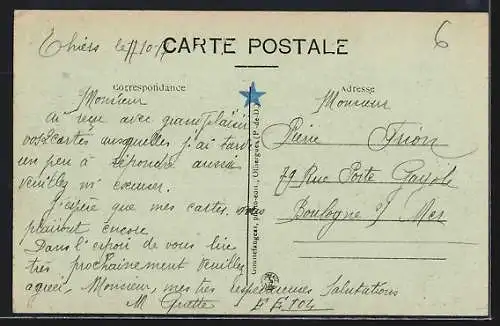 Thiers le
CARTE POSTALE
6
Correspondance
Adresse
Monsieur
ai reçu avec grand plaisir
vos 2 cartes auxquelles j'ai tardé
un peu à répondre aussi
veuillez m' excuser.
J'espère que mes cartes vous
plairont encore
Dans l'espoir de vous lire
très prochainement veuillez
agréer, Monsieur, mes très respectueuses Salutations
M
Monsieur
Pierre Frion
79 Rue Porte Gayole
Boulogne s/ Mer